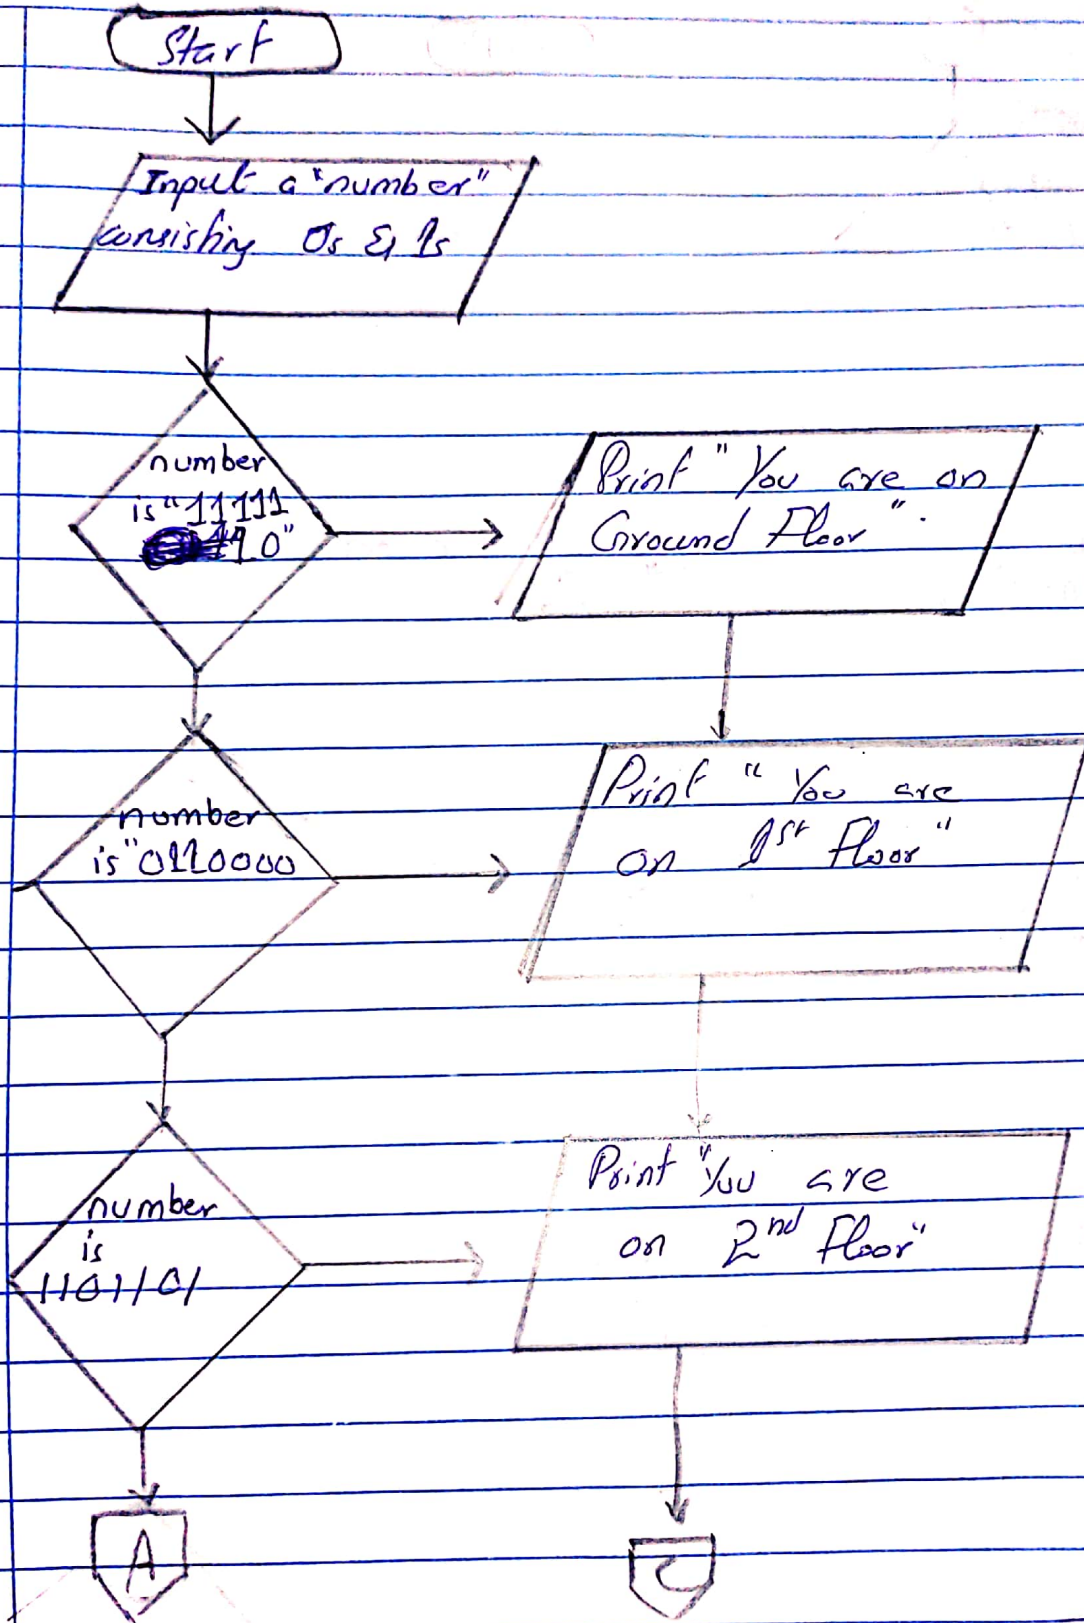 Start
Input a "number"
consisting 0s & 1s
number
is "11111
10"
Print "You are on
Ground Floor".
number
is "0110000
Print "You are
on 1st Floor"
number
is
1101101
Print "You are
on 2nd Floor"
A
C